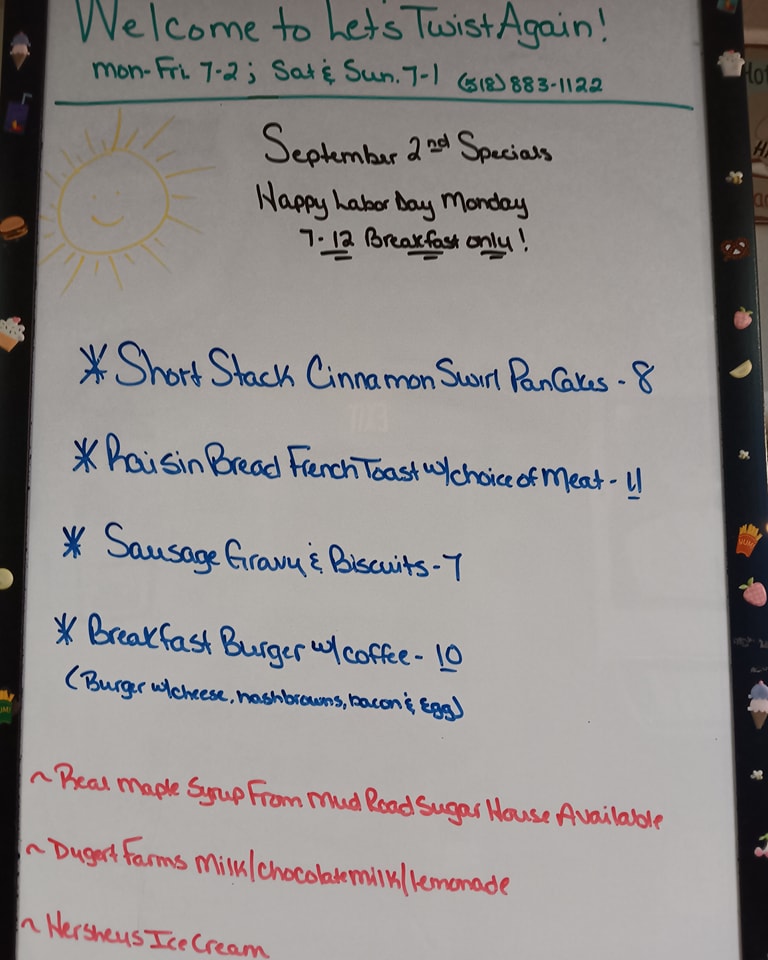 Welcome to Let's Twist Again!
Mon-Fri. 7-2; Sat & Sun. 7-1 (518) 883-1122
September 2nd Specials
Happy Labor Day Monday
7-12 Breakfast only!
* Short Stack Cinnamon Swirl Pancakes - 8
* Raisin Bread French Toast w/choice of Meat - 11
* Sausage Gravy & Biscuits - 7
* Breakfast Burger w/coffee - 10
(Burger w/cheese, hashbrowns, bacon & Egg)
~ Real Maple Syrup From Mud Road Sugar House Available
~ Dugert Farms Milk/chocolate milk/lemonade
~ Hersheys Ice Cream